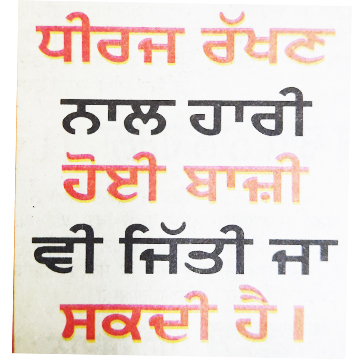 ਧੀਰਜ ਰੱਖਣ
ਨਾਲ ਹਾਰੀ
ਹੋਈ ਬਾਜ਼ੀ
ਵੀ ਜਿੱਤੀ ਜਾ
ਸਕਦੀ ਹੈ।